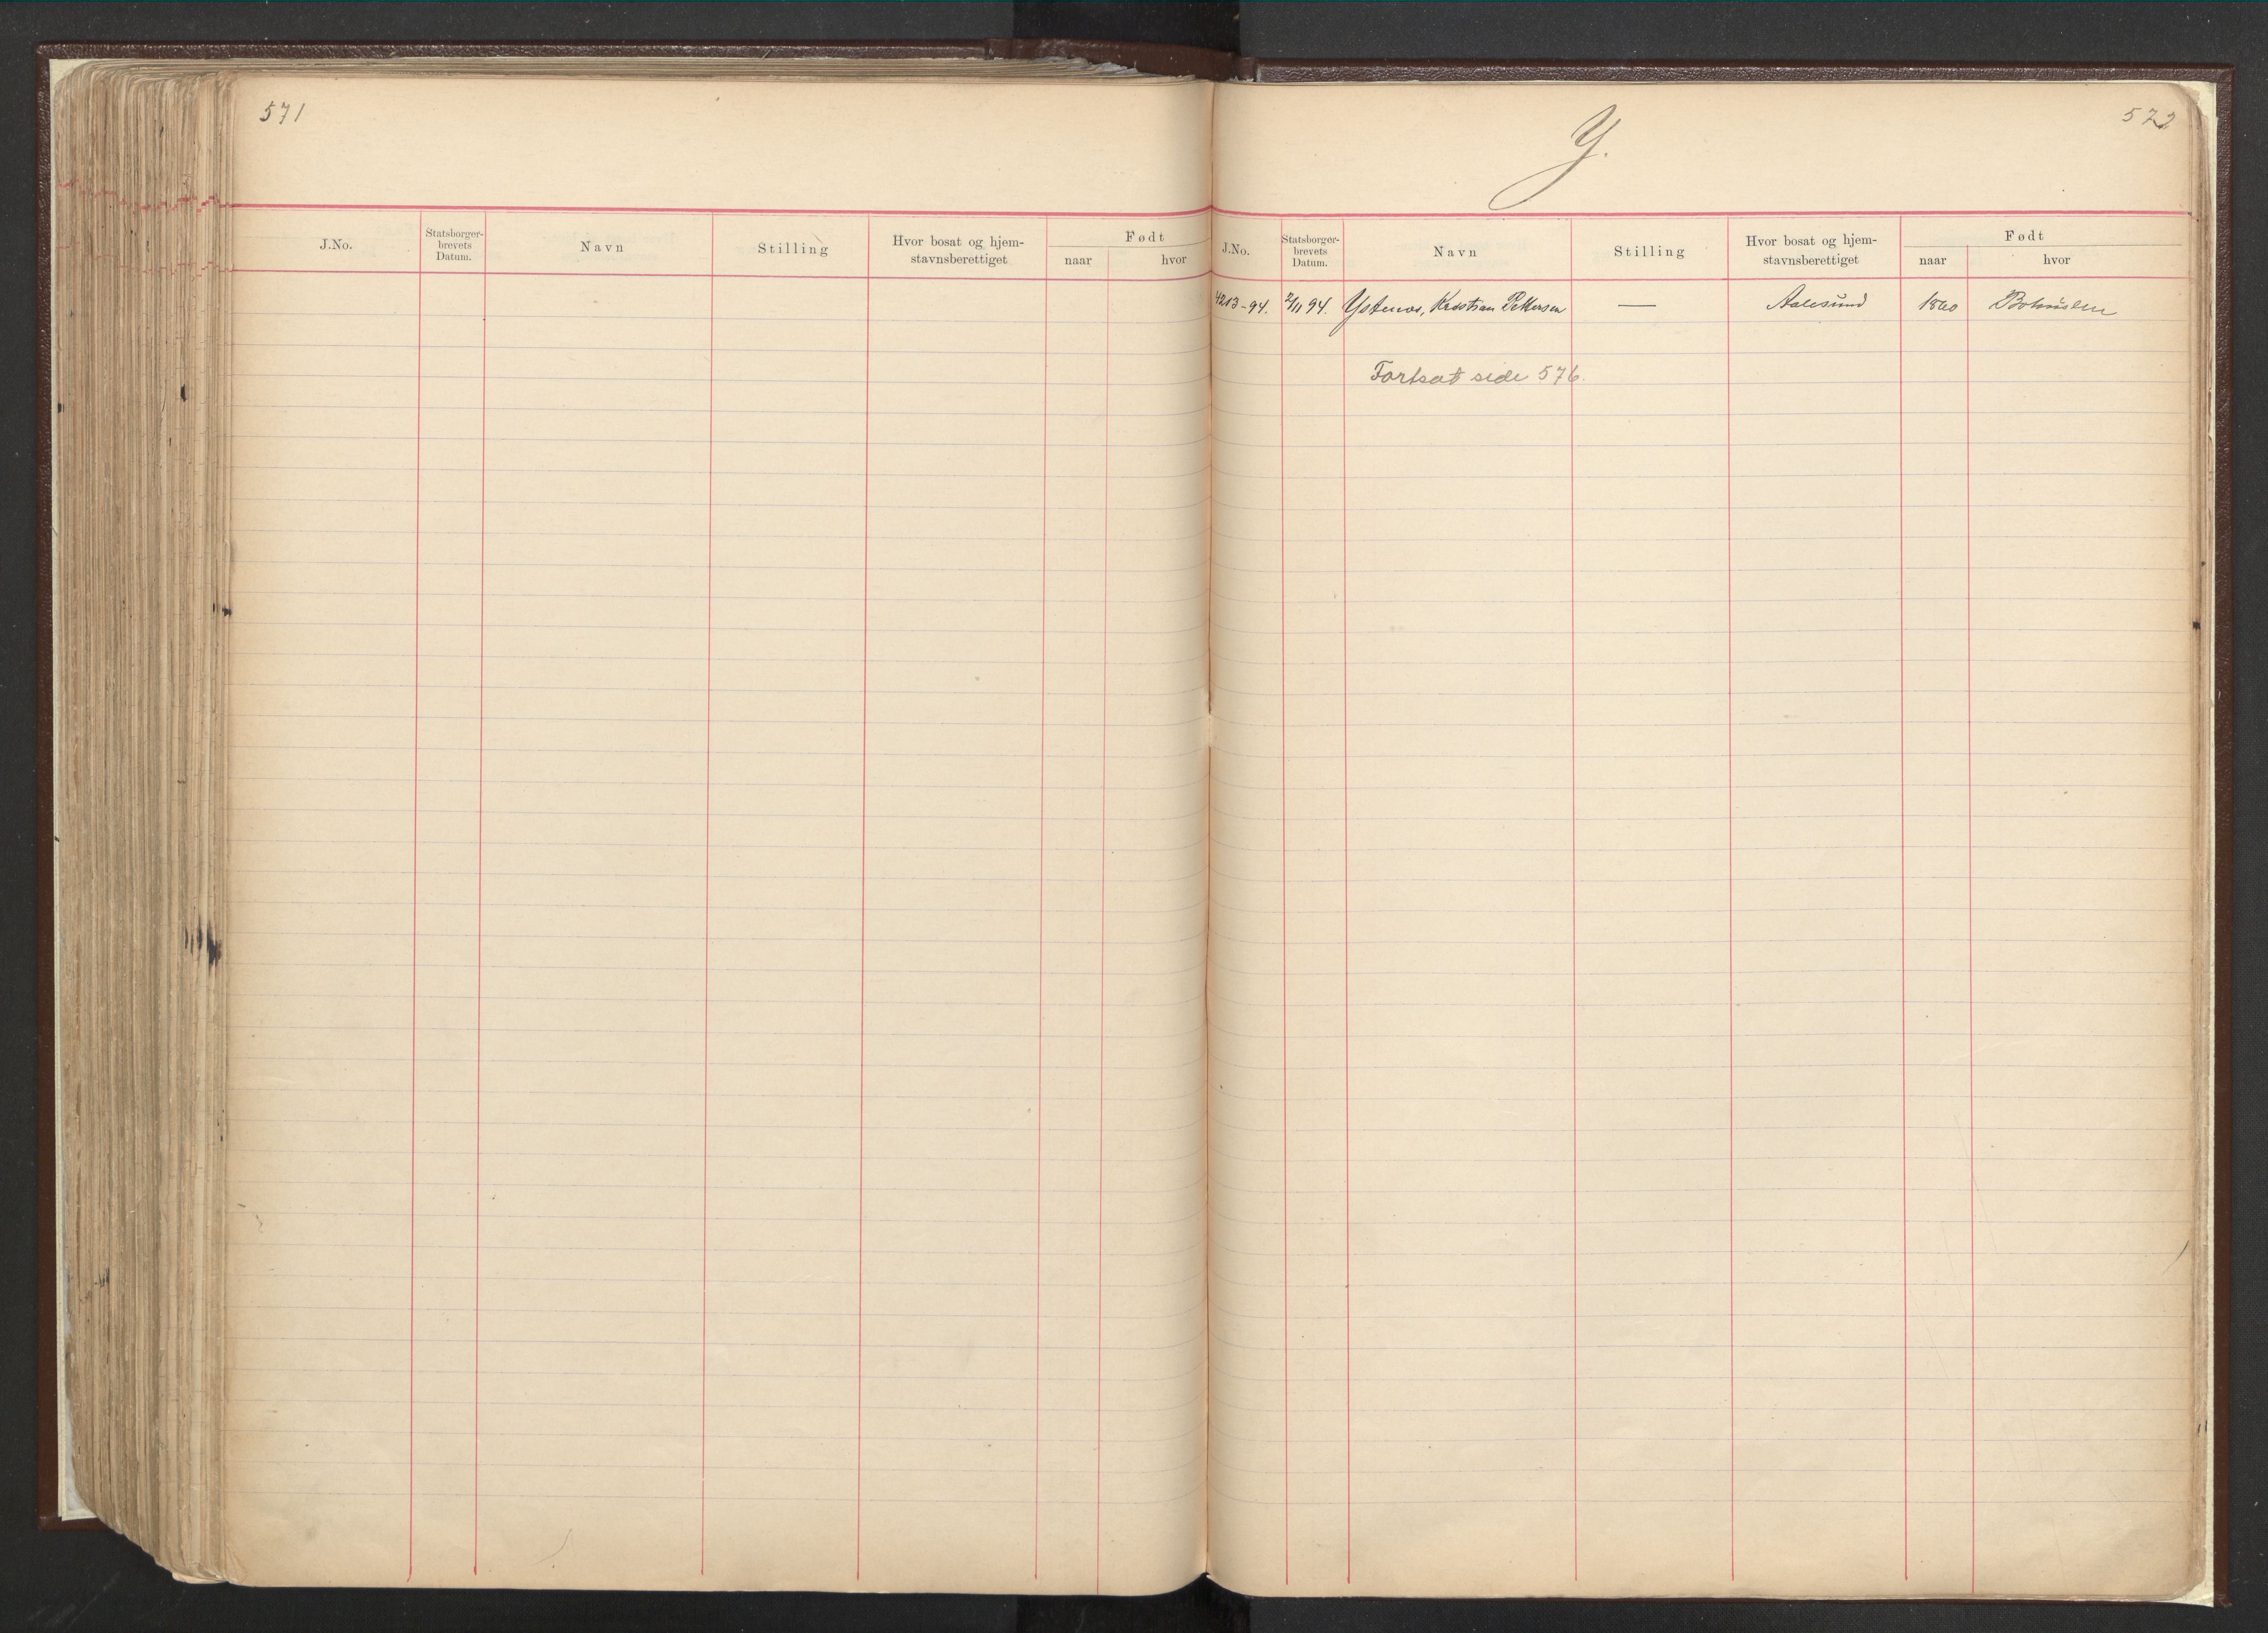 571
J.No.
Statsborger-
brevets
Datum.
Navn
Stilling
Hvor bosat og hjem-
stavnsberettiget
Født
naar
hvor
Y.
572
J.No.
Statsborger-
brevets
Datum.
Navn
Stilling
Hvor bosat og hjem-
stavnsberettiget
Født
naar
hvor
4213-94. 2/11 94. Kristian Pettersen — Aalesund 1860 Bohuslen
Fortsat side 576.